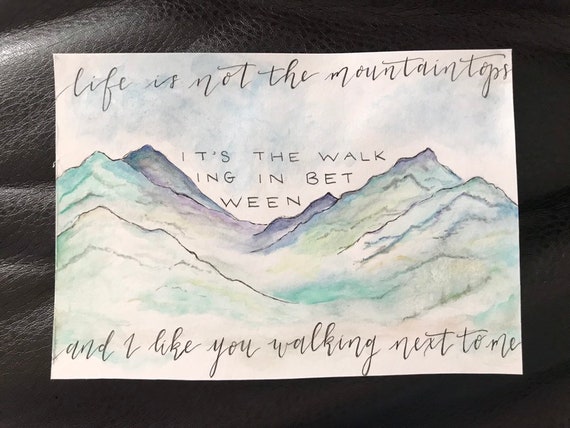 life is not the mountaintops
IT'S THE WALK
ING IN BET
WEEN
and I like you walking next to me